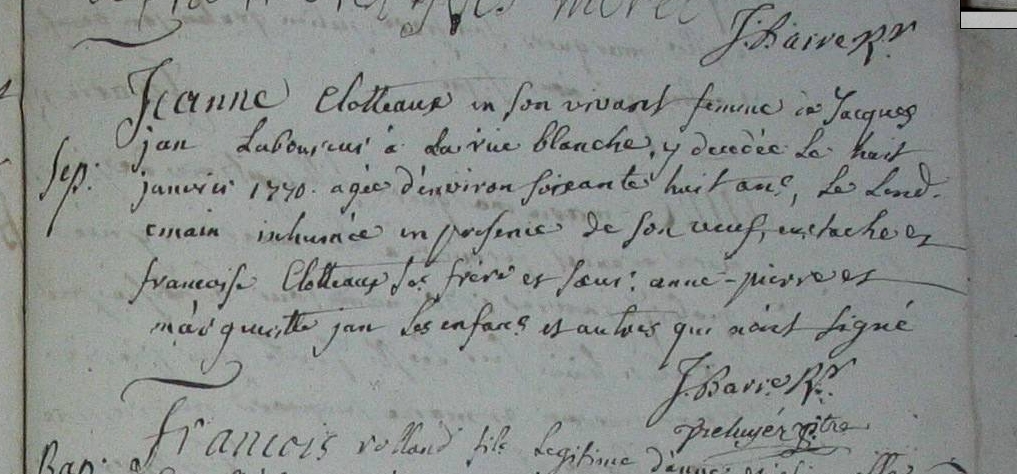 J. Barre Rr
Jeanne Clotteaux en son vivant femme à Jacques
jan Laboureur à La rüe blanche, y decedée Le huit
Sep. janvier 1770. agée d'environ soixante huit ans, Le Lend-
emain inhumée en presence de son veuf, eustache et
francoise Clotteaux ses frère et sœur: anne-pierre et
marguerite jan ses enfans et autres qui n'ont signé
J. Barre Rr.
ptre
Bap: francois rolland fils Legitime